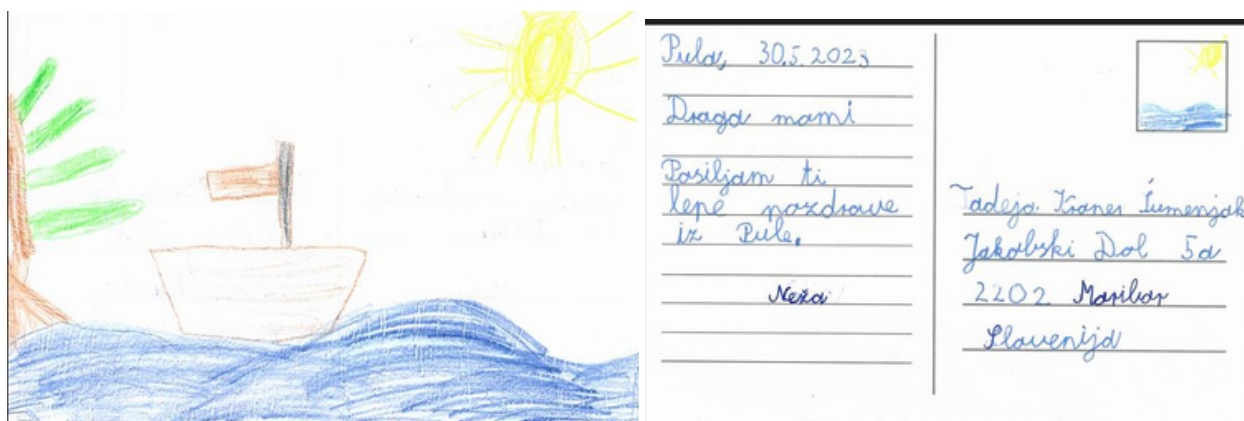 Pula, 30.5.2023
Draga mami
Posiljam ti
lepe pozdrave
iz Pule.
Neža
Tadeja Kraner Šumenjak
Jakobski Dol 5a
2202 Maribor
Slovenija